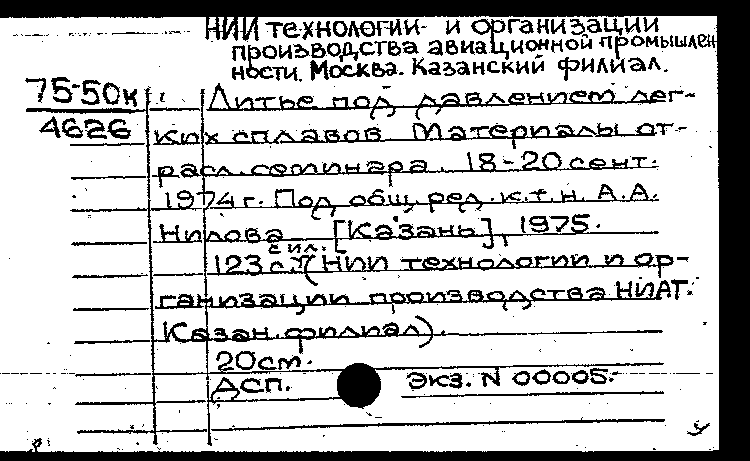 НИИ технологии и организации
производства авиационной промышлен
ности. Москва. Казанский филиал.
75-50к
4626
Литье под давлением лег-
ких сплавов Материалы от-
расл. семинара. 18-20 сент.
1974 г. Под общ. ред. к.т.н. А.А.
Нилова [Казань], 1975.
123 с. с ил. (НИИ технологии и ор-
ганизации производства НИАТ.
Казан. филиал).
20 см.
ДСП. Экз. N 00005.